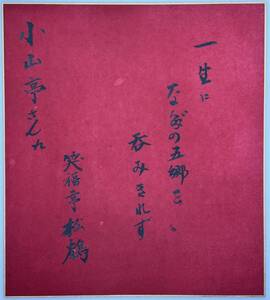 一生に
なだの五郷を
呑みきれず
笑福亭松鶴
小山亭さん江